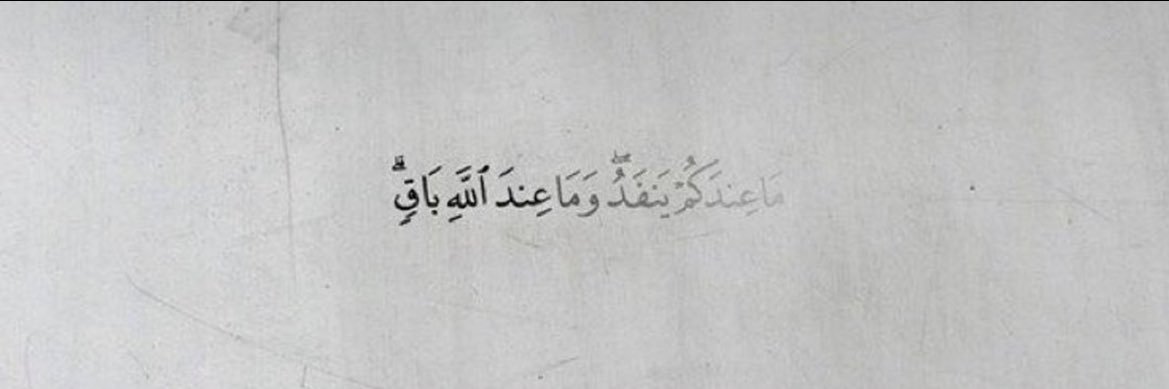 مَا عِندَكُمۡ يَنفَدُ ۖ وَمَا عِندَ ٱللَّهِ بَاقٖۗ